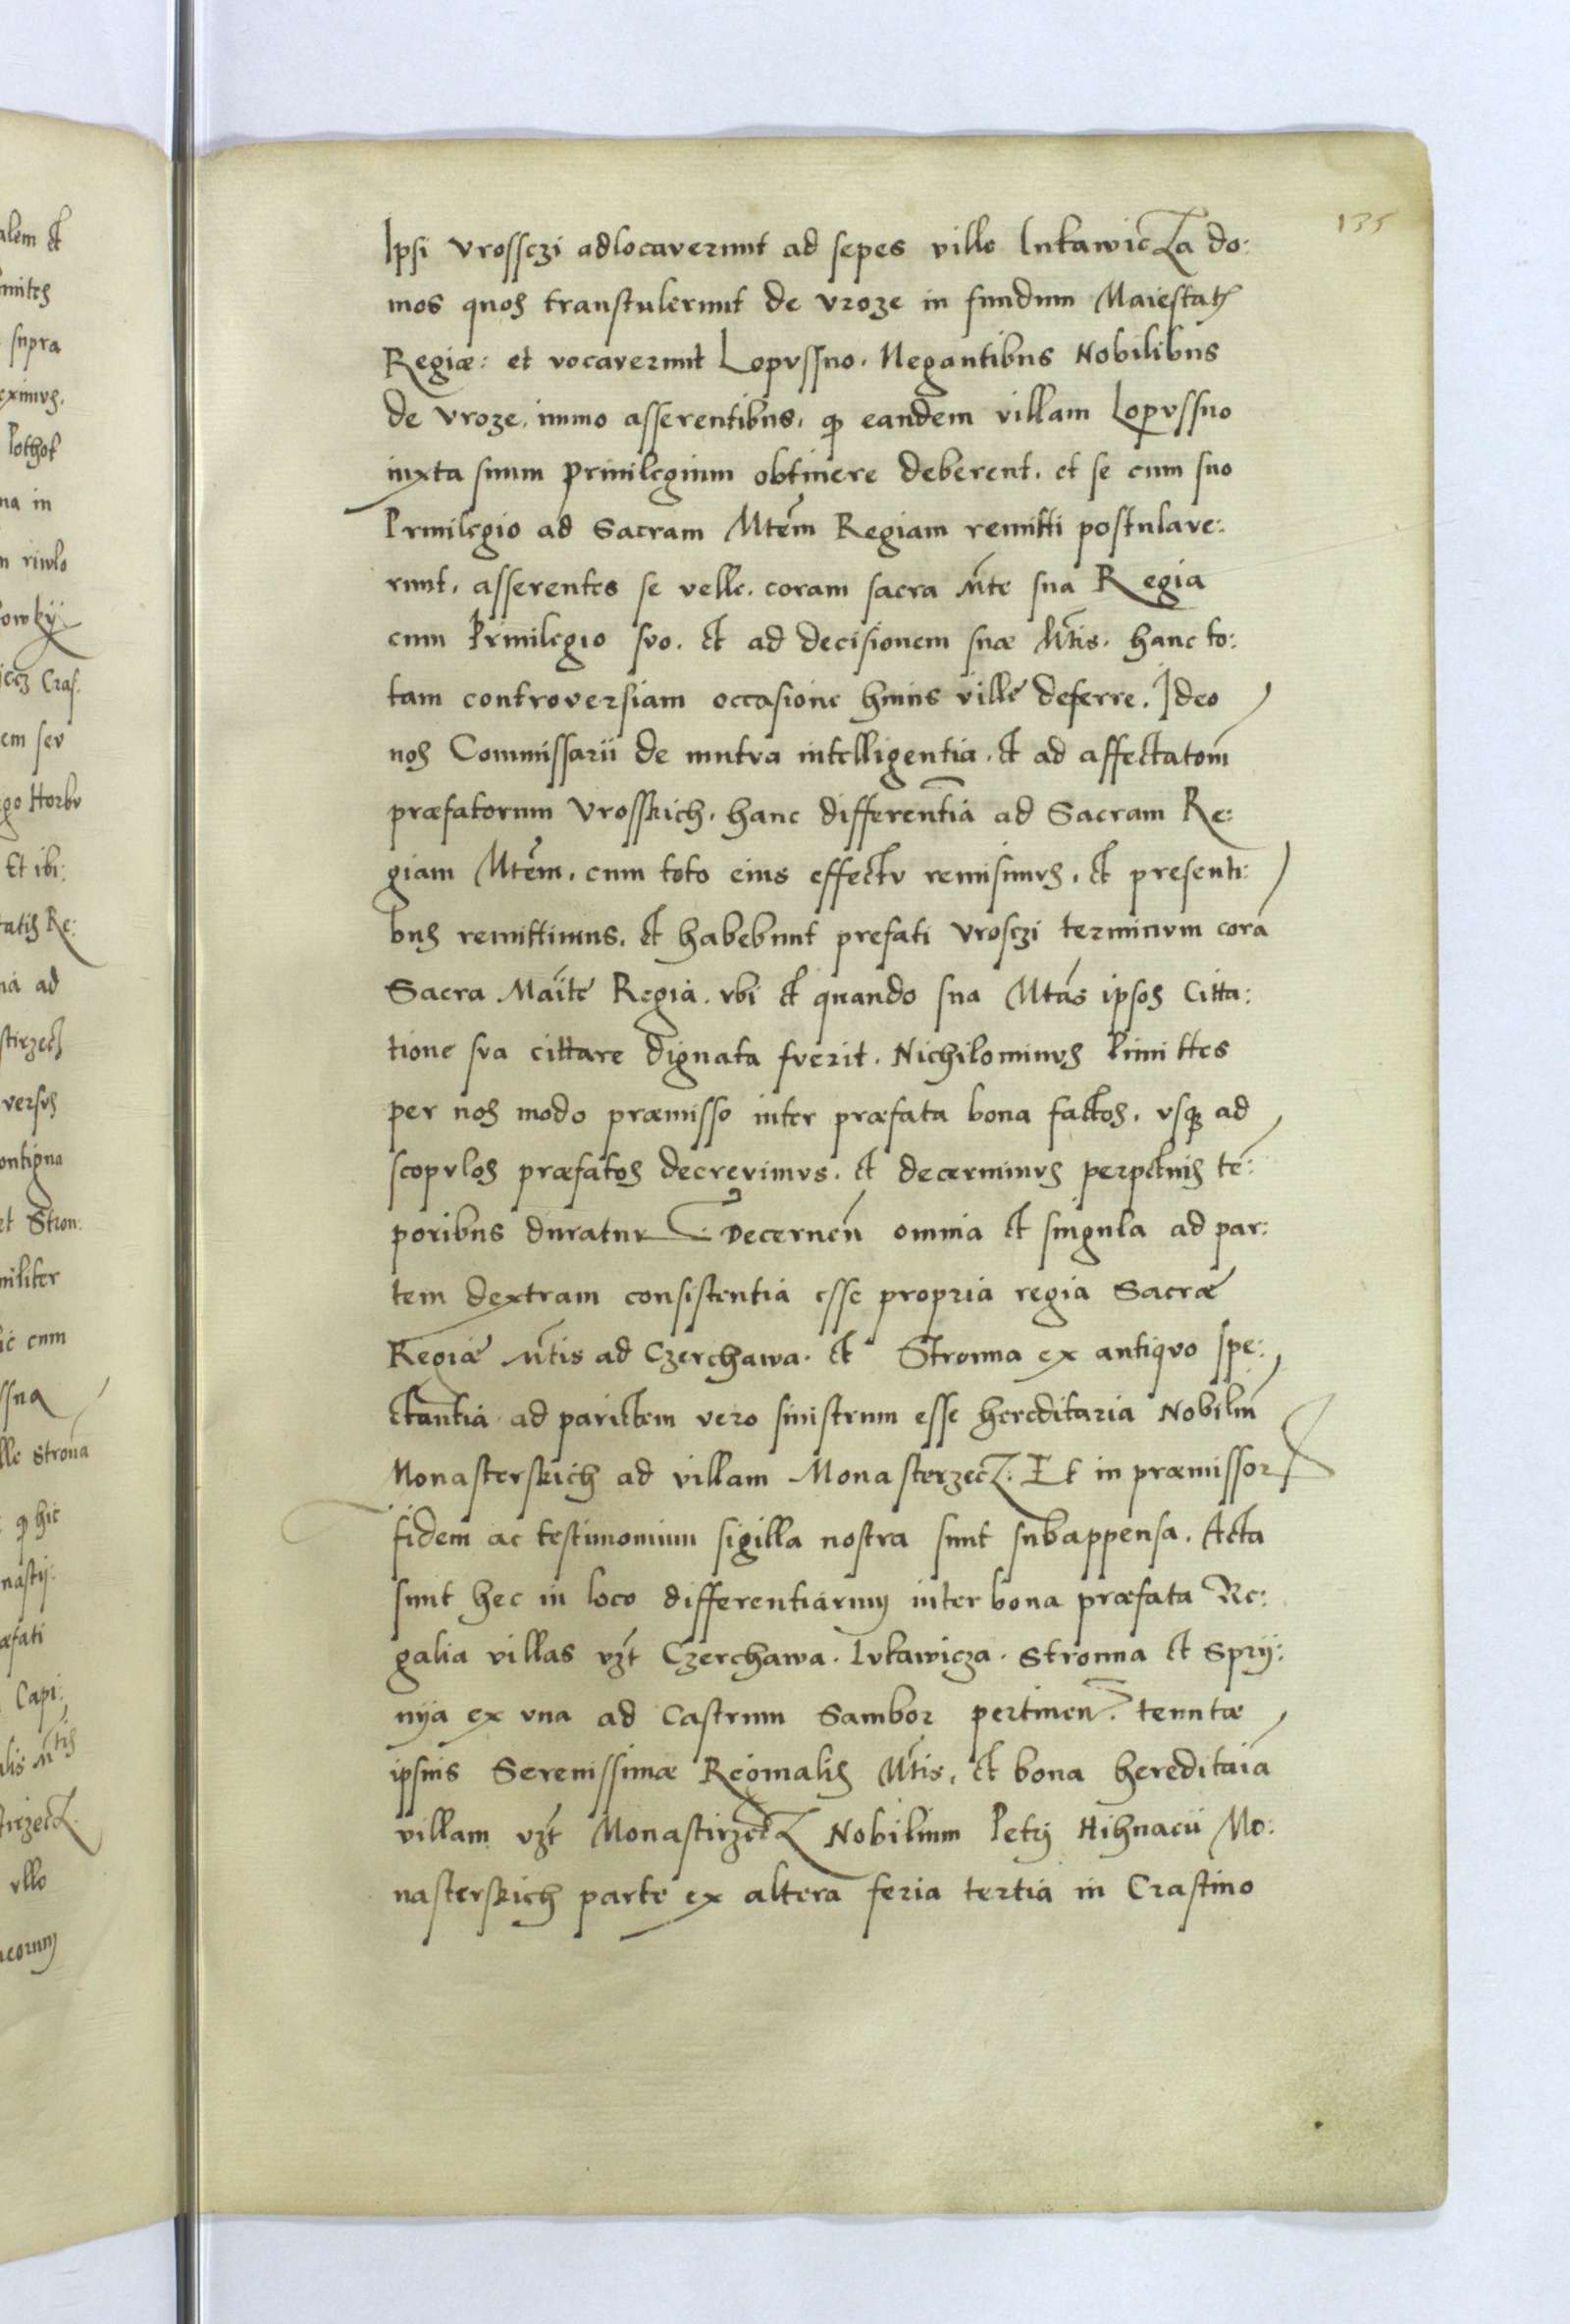 135
Ipsi Vrossczi adlocaverunt ad sepes ville Lutawicza do:
mos quos transtulerunt de Vroze in fundum Maiestatis
Regiæ: et vocaverunt Lopvssno. Negantibus Nobilibus
de Vroze, immo asserentibus, qp eandem villam Lopvssno
iuxta suum privilegium obtinere deberent, et se cum suo
Privilegio ad Sacram Mtem Regiam remitti postulave:
runt, asserentes se velle, coram sacra Mte sua Regia
cum Privilegio svo. et ad decisionem suæ Mtis. hanc to:
tam controversiam occasione huius villæ deferre. Ideo
nos Commissarii de mutva intelligentia, et ad affectatom
præfatorum Vrosskich, hanc differentia ad Sacram Re:
giam Mtem, cum toto eius effectv remisimvs, et presenti:
bus remittimus, et habebunt prefati Vrosczi terminvm cora
Sacra Maite Regia. vbi et quando sua Mtas ipsos Citta:
tione sva cittare dignata fverit. Nichilominvs limittes
per nos modo præmisso inter præfata bona factos, vsq ad
scopvlos præfatos decrevimvs, et decærnimvs perpetuis te:
poribus duratur. Decernen omnia et singula ad par:
tem dextram consistentia esse propria regia Sacræ
Regiæ Mtis ad Czerchawa. et Stronna ex antiqvo spe:
ctantia ad parictem vero sinistrum esse hereditaria Nobiliu
Monasterskich ad villam Monasterzecz. Et in præmissor
fidem ac testimonium sigilla nostra sunt subappensa. Acta
sunt hec in loco differentiarum inter bona præfata Re:
galia villas vzt Czerchawa. Lvtawicza. Stronna et Sprij:
nija ex vna ad Castrum Sambor pertinen. tenutæ
ipsius Serenissimæ Reginalis Mtis, et bona hereditaia
villam vzt Monastirzecz Nobilium Petri Hihnacii Mo:
nasterskich parte ex altera feria tertia in Crastino